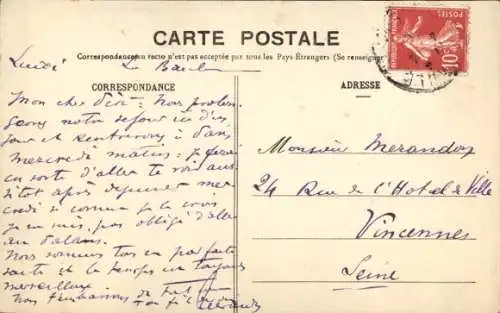 CARTE POSTALE
Correspondance au recto n'est pas acceptée par tous les Pays Étrangers (Se renseigner
Lundi
CORRESPONDANCE
ADRESSE
POSTES
10
Mon cher : Nous prolon
geons notre séjour
jour et rentrerons à Paris
Mercredi matin : je ferai
en sorte d'aller te voir aus
sitôt après déjeuner mer
credi si comme je le crois
je ne suis pas obligé d'aller
au Palais.
Nous sommes tous en parfaite
santé et le temps est toujours
merveilleux.
Nous t'embrassons
Monsieur Merandon
24 Rue de l'Hotel de Ville
Vincennes
Seine